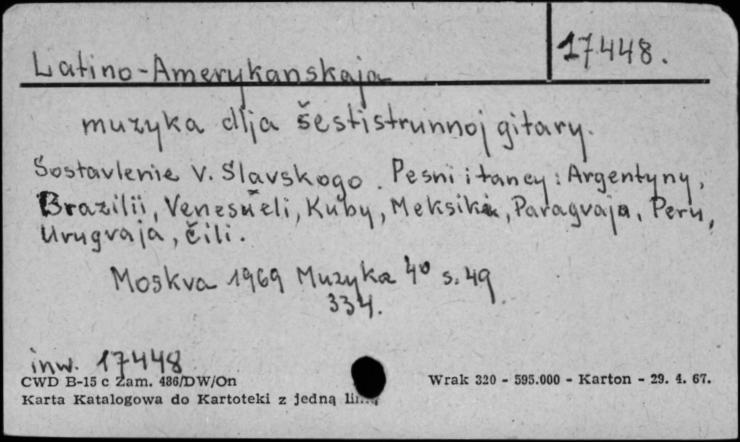 17448.
Latino-Amerykanskaja
muzyka dlja šestistrunnoj gitary.
Sostavlenie V. Slavskogo. Pesni i tancy: Argentyny,
Brazilii, Venesueli, Kuby, Meksiki, Paragvaja, Peru,
Urugvaja, Čili.
Moskva 1969 Muzyka 4° s. 49
334.
inw. 17448
CWD B-15 c Zam. 486/DW/On Wrak 320 - 595.000 - Karton - 29. 4. 67.
Karta Katalogowa do Kartoteki z jedną